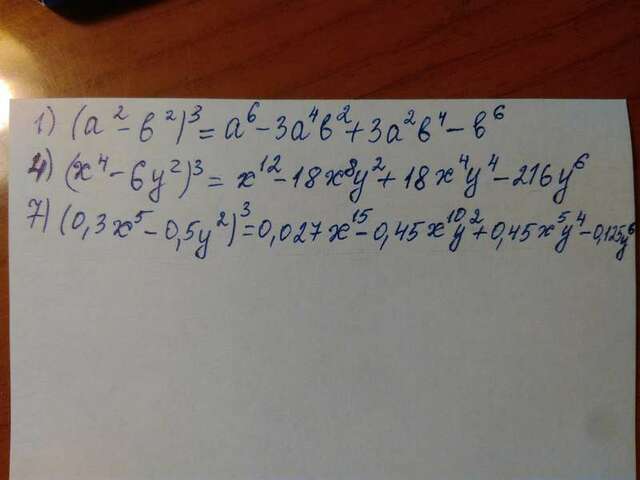 1) (a² - b²)³ = a⁶ - 3a⁴b² + 3a²b⁴ - b⁶
4) (x⁴ - 6y²)³ = x¹² - 18x⁸y² + 18x⁴y⁴ - 216y⁶
7) (0,3x⁵ - 0,5y²)³ = 0,027x¹⁵ - 0,45x¹⁰y² + 0,45x⁵y⁴ - 0,125y⁶